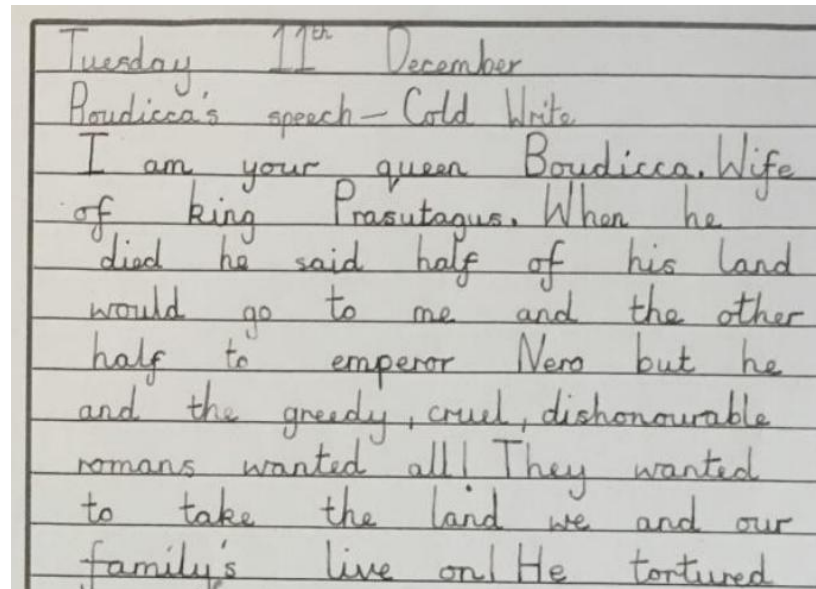 Tuesday 11th December
Boudicca's speech - Cold Write
I am your queen Boudicca. Wife
of king Prasutagus. When he
died he said half of his land
would go to me and the other
half to emperor Nero but he
and the greedy, cruel, dishonourable
romans wanted all! They wanted
to take the land we and our
family's live on! He tortured